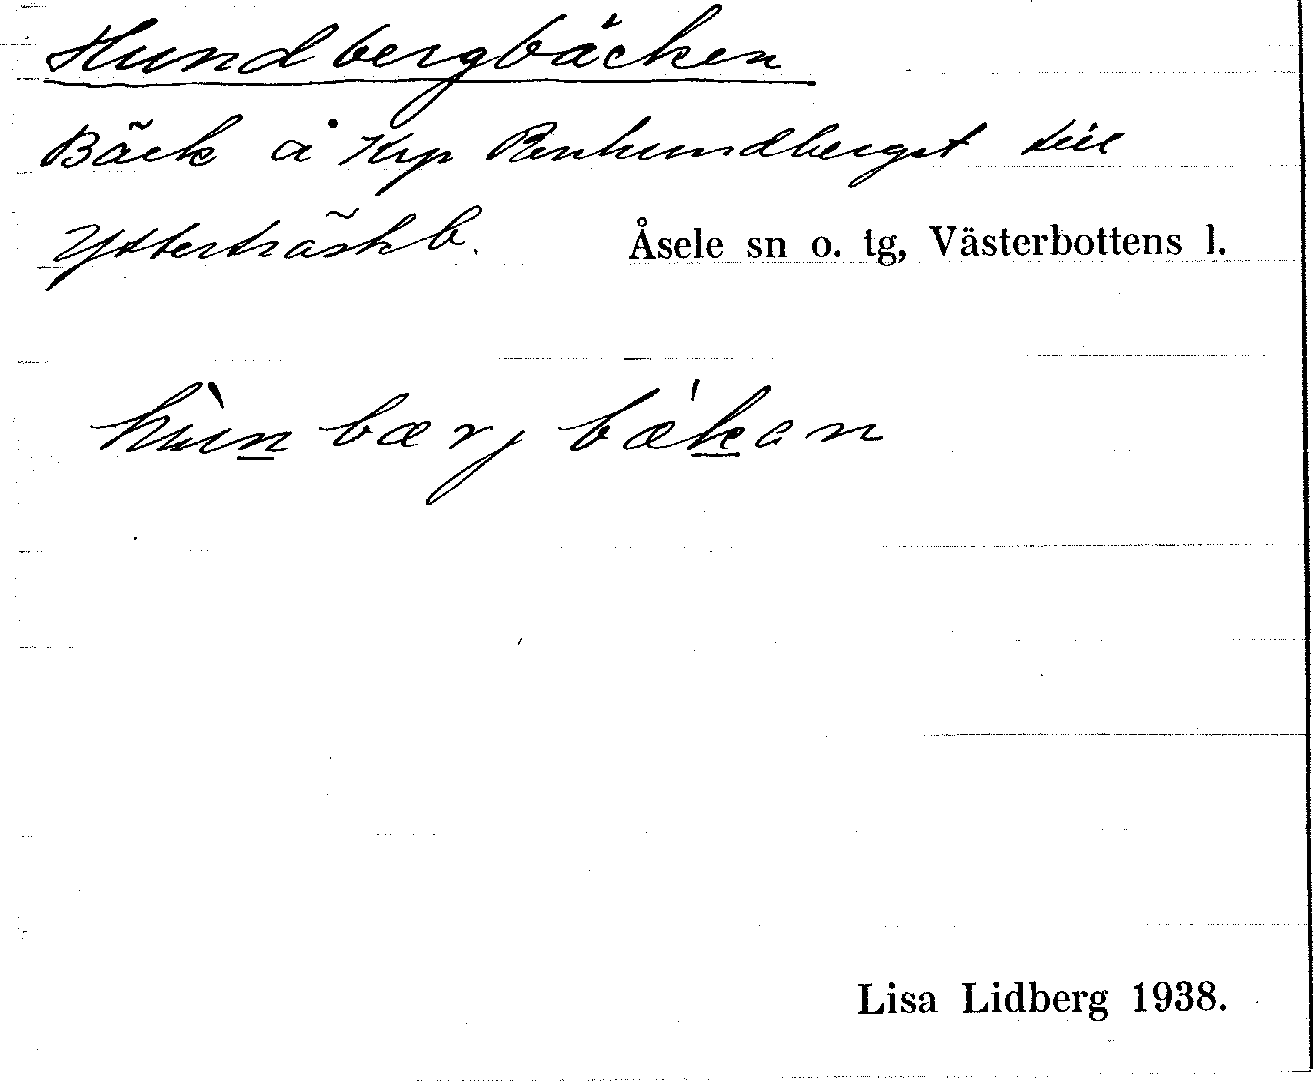 Hundbergbäcken
Bäck å Krp Renhundberget till
Ytterträskb. Åsele sn o. tg, Västerbottens l.
hùn bærj bækan
Lisa Lidberg 1938.